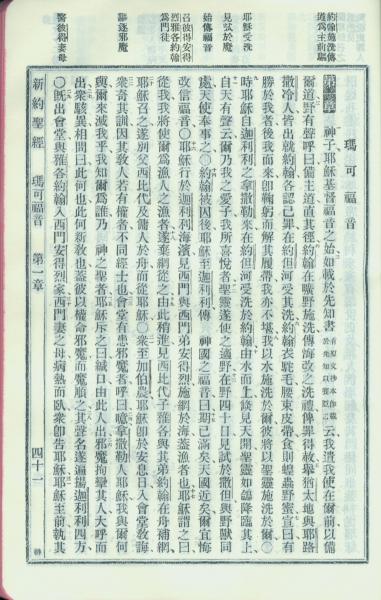 瑪可福音
約翰施洗傳
道爲主前驅
第一章 神子耶穌基督福音之始如載於先知書云我遣我使在爾前以備
爾道野有聲呼曰備主道直其徑約翰在曠野施洗傳悔改之洗禮俾罪得赦舉猶太地與耶路
撒冷人皆出就約翰各認己罪在約但河受其洗約翰衣駝毛腰束皮帶食則蝗蟲野蜜宣曰有
勝於我者後我而來卽鞠躬而解其履帶我亦不堪我以水施洗於爾彼將以聖靈施洗於爾〇
耶穌受洗
時耶穌自迦利利之拿撒勒來在約但河受洗於約翰由水而上倐見天開聖靈如鴿降臨其上
見試於魔
自天有聲云爾乃我之愛子我所喜悅者聖靈遂使之適野在野四十日見試於撒但與野獸同
始傳福音
處天使奉事之〇約翰被囚後耶穌至迦利利傳 神國之福音曰期已滿矣天國近矣爾宜悔
召彼得安得
烈雅各約翰
爲門徒
改信福音〇耶穌行於迦利利海濱見西門與西門弟安得烈施網於海蓋漁者也耶穌謂之曰
從我我將使爾爲漁人之漁者遂棄網從之由此稍進見西比代子雅各與其弟約翰在舟補網
耶穌召之遂別父西比代及傭人於舟而從耶穌〇衆至加伯農耶穌卽於安息日入會堂敎誨
驅逐邪魔
衆奇其訓因其敎人若有權者不同經士也會堂有患邪魔者呼曰噫拿撒勒人耶穌我與爾何
與爾來滅我乎我知爾爲誰乃 神之聖者耶穌斥之曰緘口由此人出邪魔拘攣其人大呼而
出衆駭異相問曰此何也此何新敎也蓋彼以權命邪魔而魔順之其聲名遂遍揚迦利利四方
醫彼得妻母
〇旣出會堂與雅各約翰入西門安得烈家西門妻之母病熱而臥衆卽告耶穌耶穌至前執其
新約聖經 瑪可福音 第一章 四十一